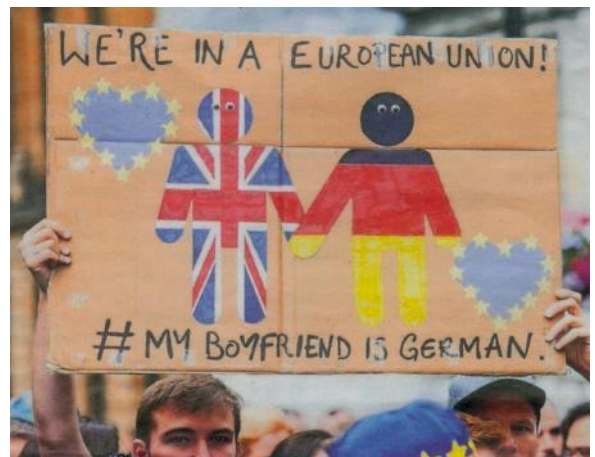 WE'RE IN A EUROPEAN UNION!
# MY BOYFRIEND IS GERMAN.